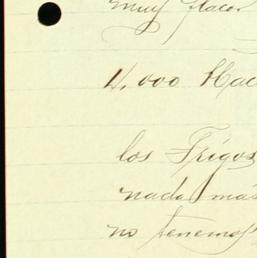 muy flacos
4,000 Hac
los Trigos
nada más
no tenemos